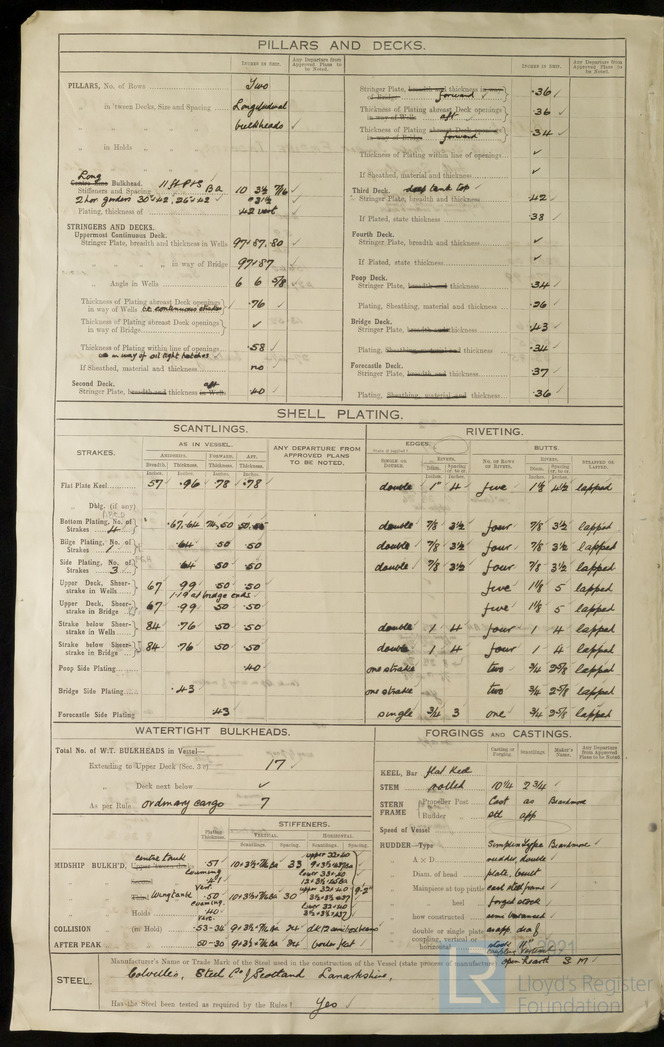 PILLARS AND DECKS.
INCHES IN SHIP. Any Departure from Approved Plans to be Noted. INCHES IN SHIP. Any Departure from Approved Plans to be Noted.
PILLARS, No. of Rows Two
„ in 'tween Decks, Size and Spacing Longitudinal
„ „ „ „ bulkheads ✓
„ in Holds „ „
Long
Bulkhead.
Stiffeners and Spacing 11 ft P+S BA 10 3½ 7/16
2 hor girders 30×42, 26×42
Plating, thickness of .42 vert
STRINGERS AND DECKS.
Uppermost Continuous Deck.
Stringer Plate, breadth and thickness in Wells 97×.87.80
„ „ „ „ in way of Bridge 97×.87
„ Angle in Wells 6 6 5/8
Thickness of Plating abreast Deck openings
in way of Wells .76
Thickness of Plating abreast Deck openings
in way of Bridge ✓
Thickness of Plating within line of openings .58
in way of oil tight hatches
If Sheathed, material and thickness no
Second Deck. aft
Stringer Plate, breadth and thickness in Wells .40
Stringer Plate, breadth and thickness in way
of Bridge forward .36
Thickness of Plating abreast Deck openings
in way of Wells aft .36
Thickness of Plating abreast Deck openings
in way of Bridge forward .34
Thickness of Plating within line of openings ✓
If Sheathed, material and thickness ✓
Third Deck. deep tank top
Stringer Plate, breadth and thickness .42
If Plated, state thickness .38
Fourth Deck.
Stringer Plate, breadth and thickness ✓
If Plated, state thickness ✓
Poop Deck.
Stringer Plate, breadth and thickness .34
Plating, Sheathing, material and thickness .36
Bridge Deck.
Stringer Plate, breadth and thickness .43
Plating, Sheathing, material and thickness .34
Forecastle Deck.
Stringer Plate, breadth and thickness .37
Plating, Sheathing, material and thickness .36
SHELL PLATING.
SCANTLINGS. RIVETING.
STRAKES. AS IN VESSEL. ANY DEPARTURE FROM APPROVED PLANS TO BE NOTED. EDGES. BUTTS.
AMIDSHIPS. FORWARD. AFT. SINGLE OR DOUBLE. RIVETS. NO. OF ROWS OF RIVETS. RIVETS. STRAPPED OR LAPPED.
Breadth. Thickness. Thickness. Thickness. Diam. Spacing cr. to cr. Diam. Spacing cr. to cr.
Inches. Inches. Inches. Inches. Inches. Inches. Inches. Inches.
Flat Plate Keel 57 .96 .78 .78 double 1" 4 five 1⅛ 4½ lapped
„ Dblg. (if any)
Bottom Plating, No. of
Strakes 4 .67.64 double 7/8 3½ four 7/8 3½ lapped
Bilge Plating, No. of
Strakes 1 .64 .50 .50 double 7/8 3½ four 7/8 3½ lapped
Side Plating, No. of
Strakes 3 .64 .50 .50 double 7/8 3½ four 7/8 3½ lapped
Upper Deck, Sheer-
strake in Wells 67 .99 .50 .50 five 1⅛ 5 lapped
1.19 at bridge ends
Upper Deck, Sheer-
strake in Bridge 67 .99 .50 .50 five 1⅛ 5 lapped
Strake below Sheer-
strake in Wells 84 .76 .50 .50 double 1 4 four 1 4 lapped
Strake below Sheer-
strake in Bridge 84 .76 .50 .50 double 1 4 four 1 4 lapped
Poop Side Plating .40 one strake two 3/4 2⅝ lapped
Bridge Side Plating .43 one strake two 3/4 2⅝ lapped
Forecastle Side Plating .43 single 3/4 3 one 3/4 2⅝ lapped
WATERTIGHT BULKHEADS.
Total No. of W.T. BULKHEADS in Vessel—
Extending to Upper Deck (Sec. 3 c) 17
„ Deck next below ✓
As per Rule ordinary cargo 7
Plating Thickness. STIFFENERS.
VERTICAL. HORIZONTAL.
Scantlings. Spacing. Scantlings. Spacing.
MIDSHIP BULKH'D, centre tank .57 10×3½×7/16 BA 33 upper 32×40
wing tank .50 10×3½×7/16 BA 30 9'-2"
„ Holds .40
COLLISION „ (in Hold) .53-.36 9×3½×7/16 BA 24
AFTER PEAK „ „ .50-.30 9×3½×7/16 BA 24 boiler flat
FORGINGS AND CASTINGS.
Casting or Forging. Scantlings. Maker's Name. Any Departure from Approved Plans to be Noted.
KEEL, Bar flat keel
STEM rolled 10¼ 2¾
STERN FRAME { Propeller Post Cast as Beardmore
Rudder „ stl app
Speed of Vessel
RUDDER—Type Simplex type Beardmore
„ A × D rudder, double
„ Diam. of head plate, built
„ Mainpiece at top pintle cast steel frame
„ „ heel forged stock
„ how constructed semi balanced
„ double or single plate as app.
„ coupling, vertical or
horizontal
STEEL.
Manufacturer's Name or Trade Mark of the Steel used in the construction of the Vessel (state process of manufacture) open hearth S M
Colvilles, Steel Co of Scotland Lanarkshire,
Has the Steel been tested as required by the Rules? Yes
LR
Lloyd's Register
Foundation